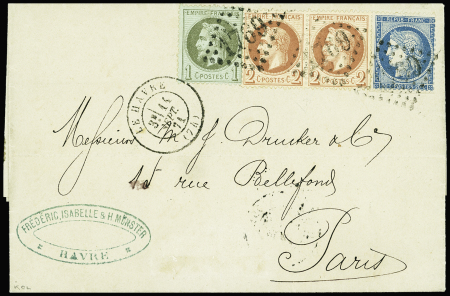 EMPIRE FRANÇAIS EMPIRE FRANÇAIS REPUB. FRANC.
1 POSTES 1 2 C POSTES C 2 2 C POSTES C 2
LE HAVRE
SEPT.
71
(74)
Messieurs M. J. Drucker & Cie
15 rue Bellefond
Paris
FRÉDÉRIC, ISABELLE & H. MÜNSTER
HAVRE